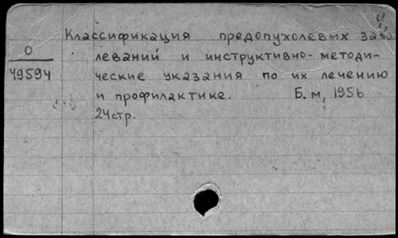 Классификация предопухолевых забо
О
49594
леваний и инструктивно-методи-
ческие указания по их лечению
и профилактике. Б.м, 1956
24стр.